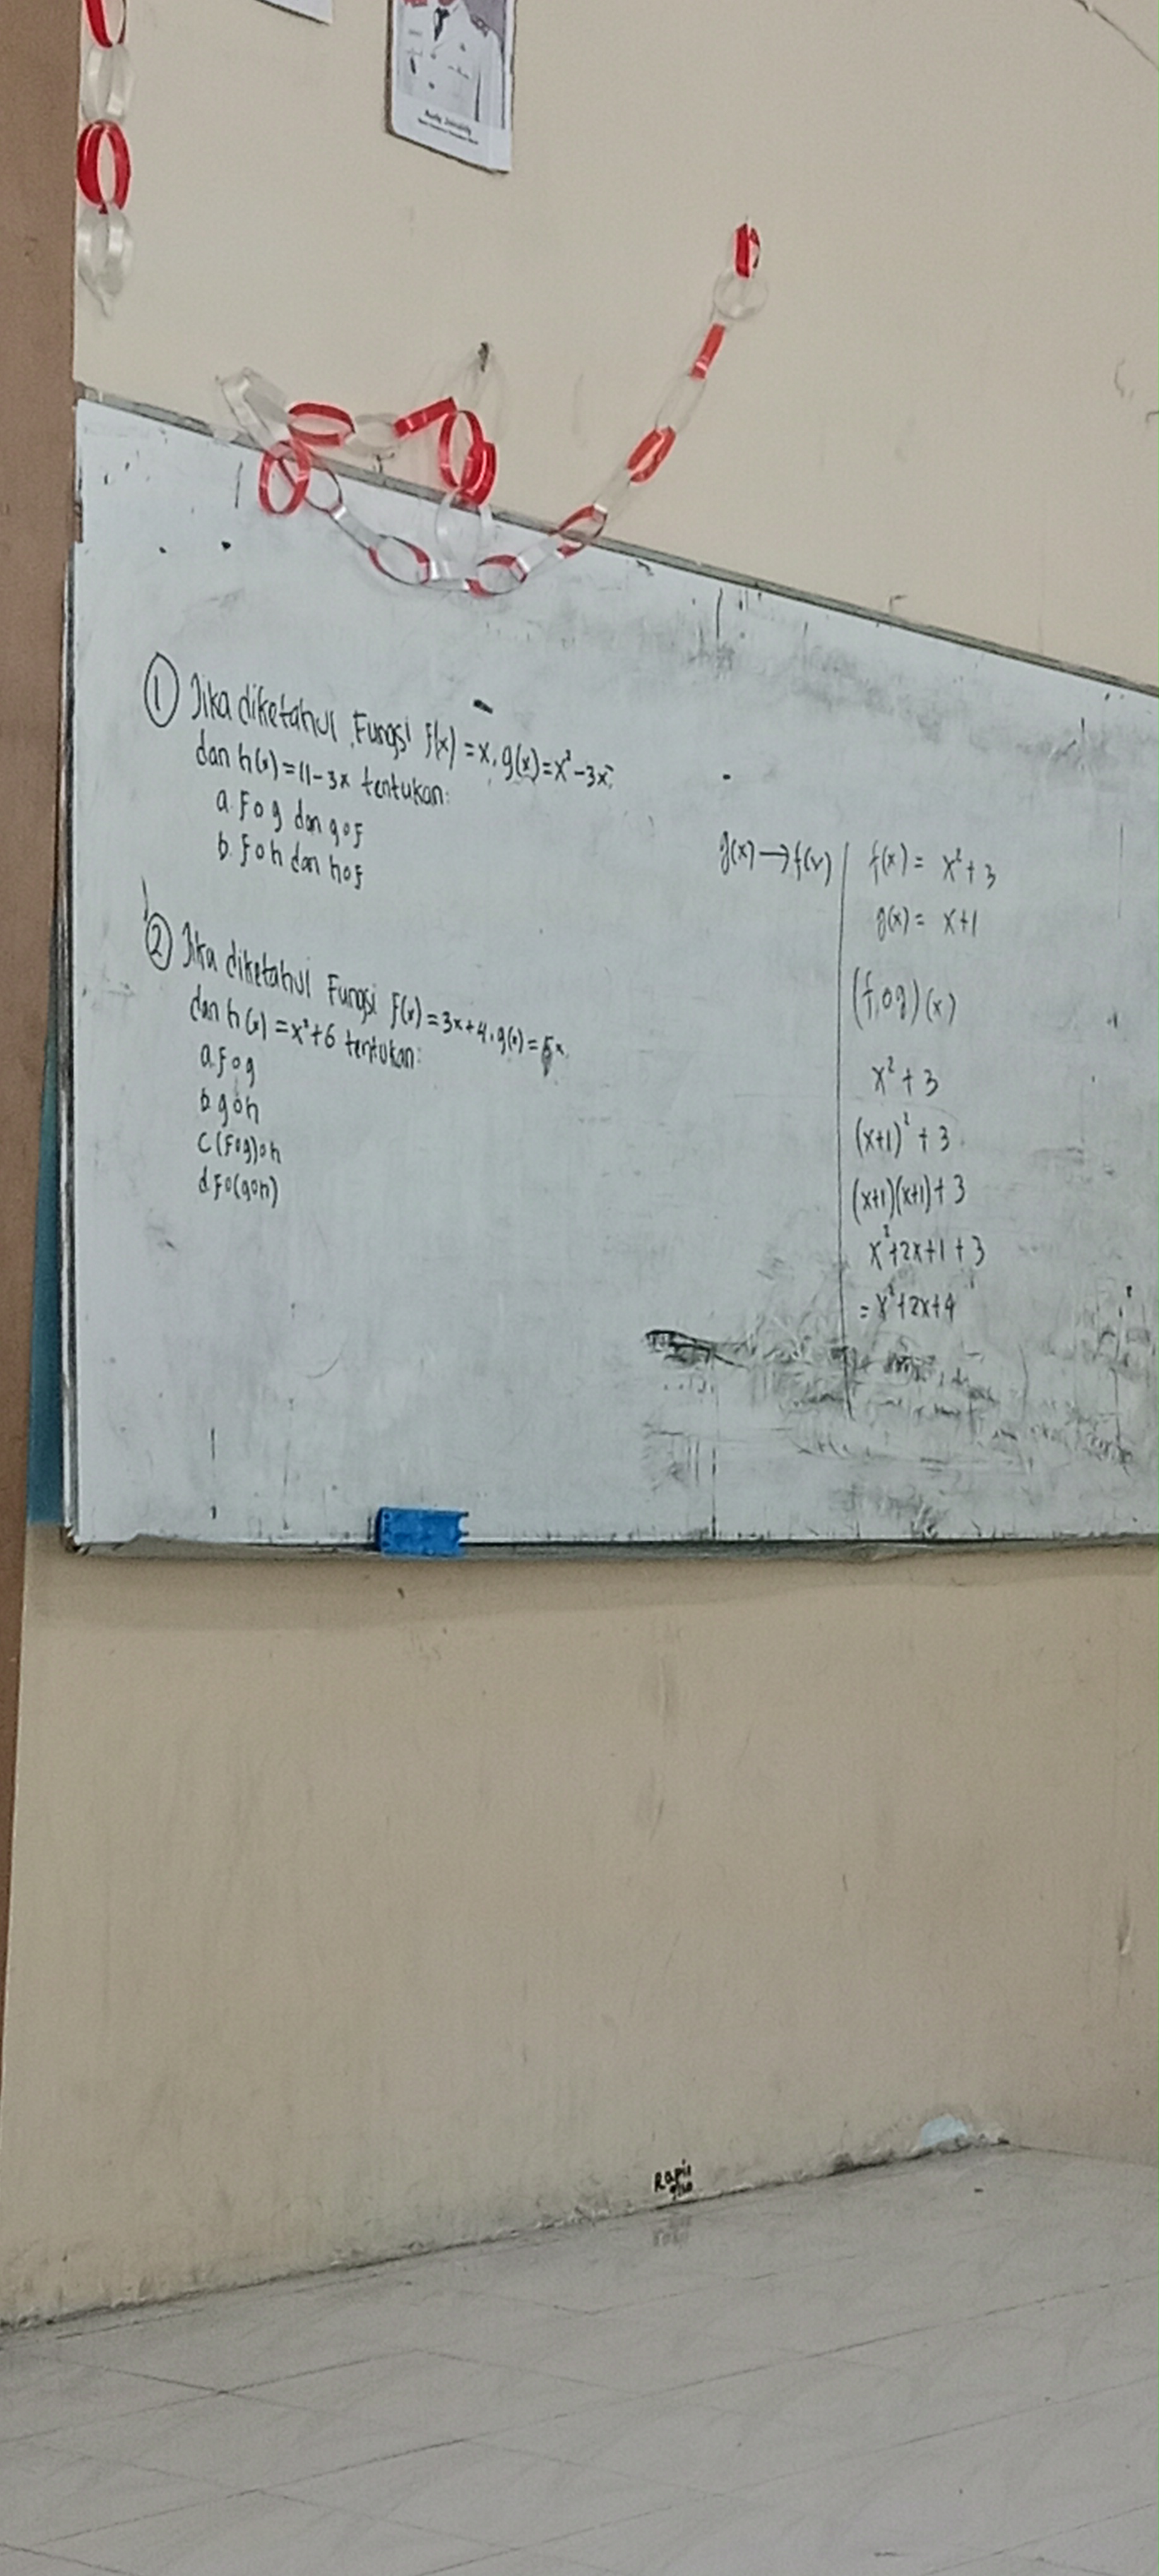 ① Jika diketahui Fungsi f(x) = x, g(x) = x² - 3x,
dan h(x) = 11 - 3x tentukan:
a. Fog dan gof
b. Foh dan hof
② Jika diketahui Fungsi f(x) = 3x + 4, g(x) = 5x
dan h(x) = x² + 6 tentukan:
a. Fog
b. goh
c (Fog)oh
d. Fo(goh)
g(x) → f(x)
f(x) = x² + 3
g(x) = x + 1
(f og) (x)
x² + 3
(x+1)² + 3
(x+1)(x+1) + 3
x² + 2x + 1 + 3
= x² + 2x + 4
Rapii